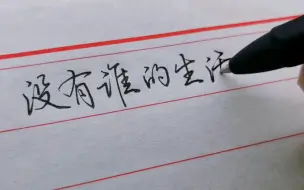 没有谁的生活